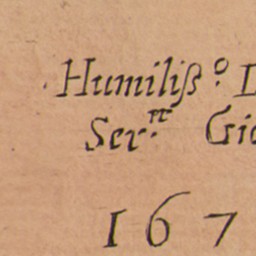 Humiliß.º
Ser.re
167